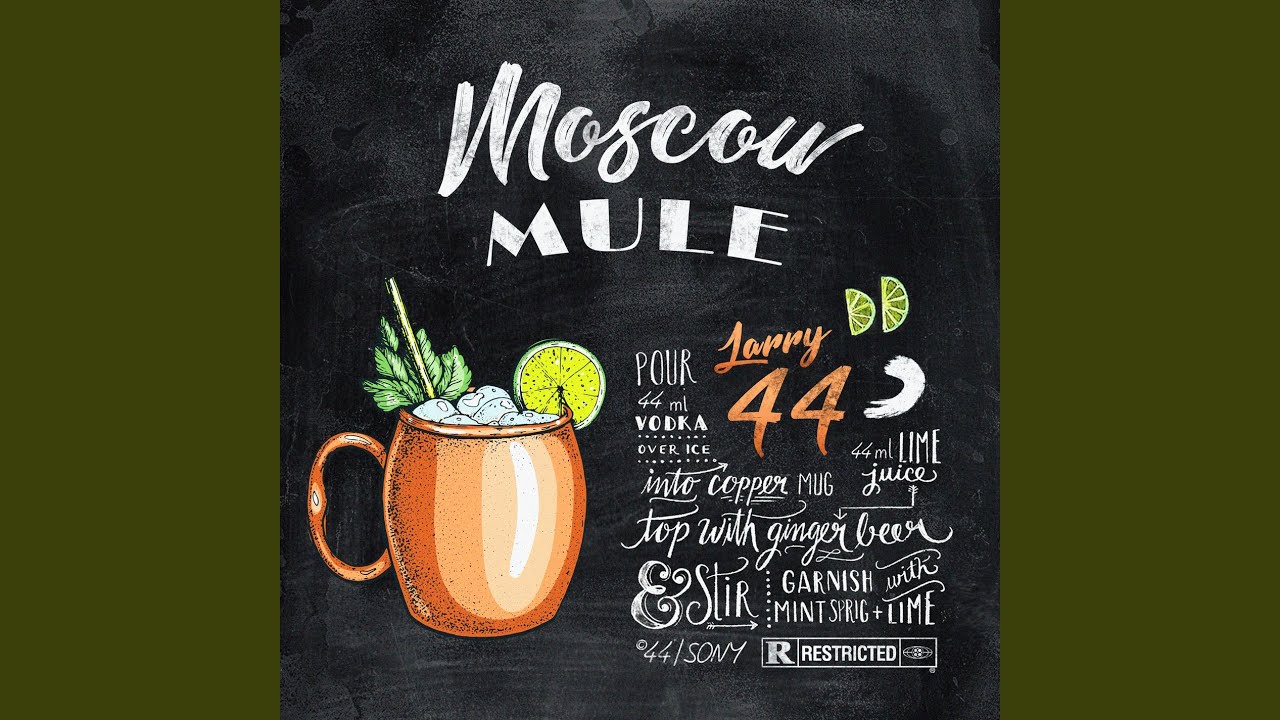 Moscow
MULE
Larry
44
POUR
44 ml
VODKA
OVER ICE
44 ml LIME
juice
into copper MUG
top with ginger beer
& Stir
GARNISH with
MINT SPRIG + LIME
©44/SONY
R RESTRICTED ®